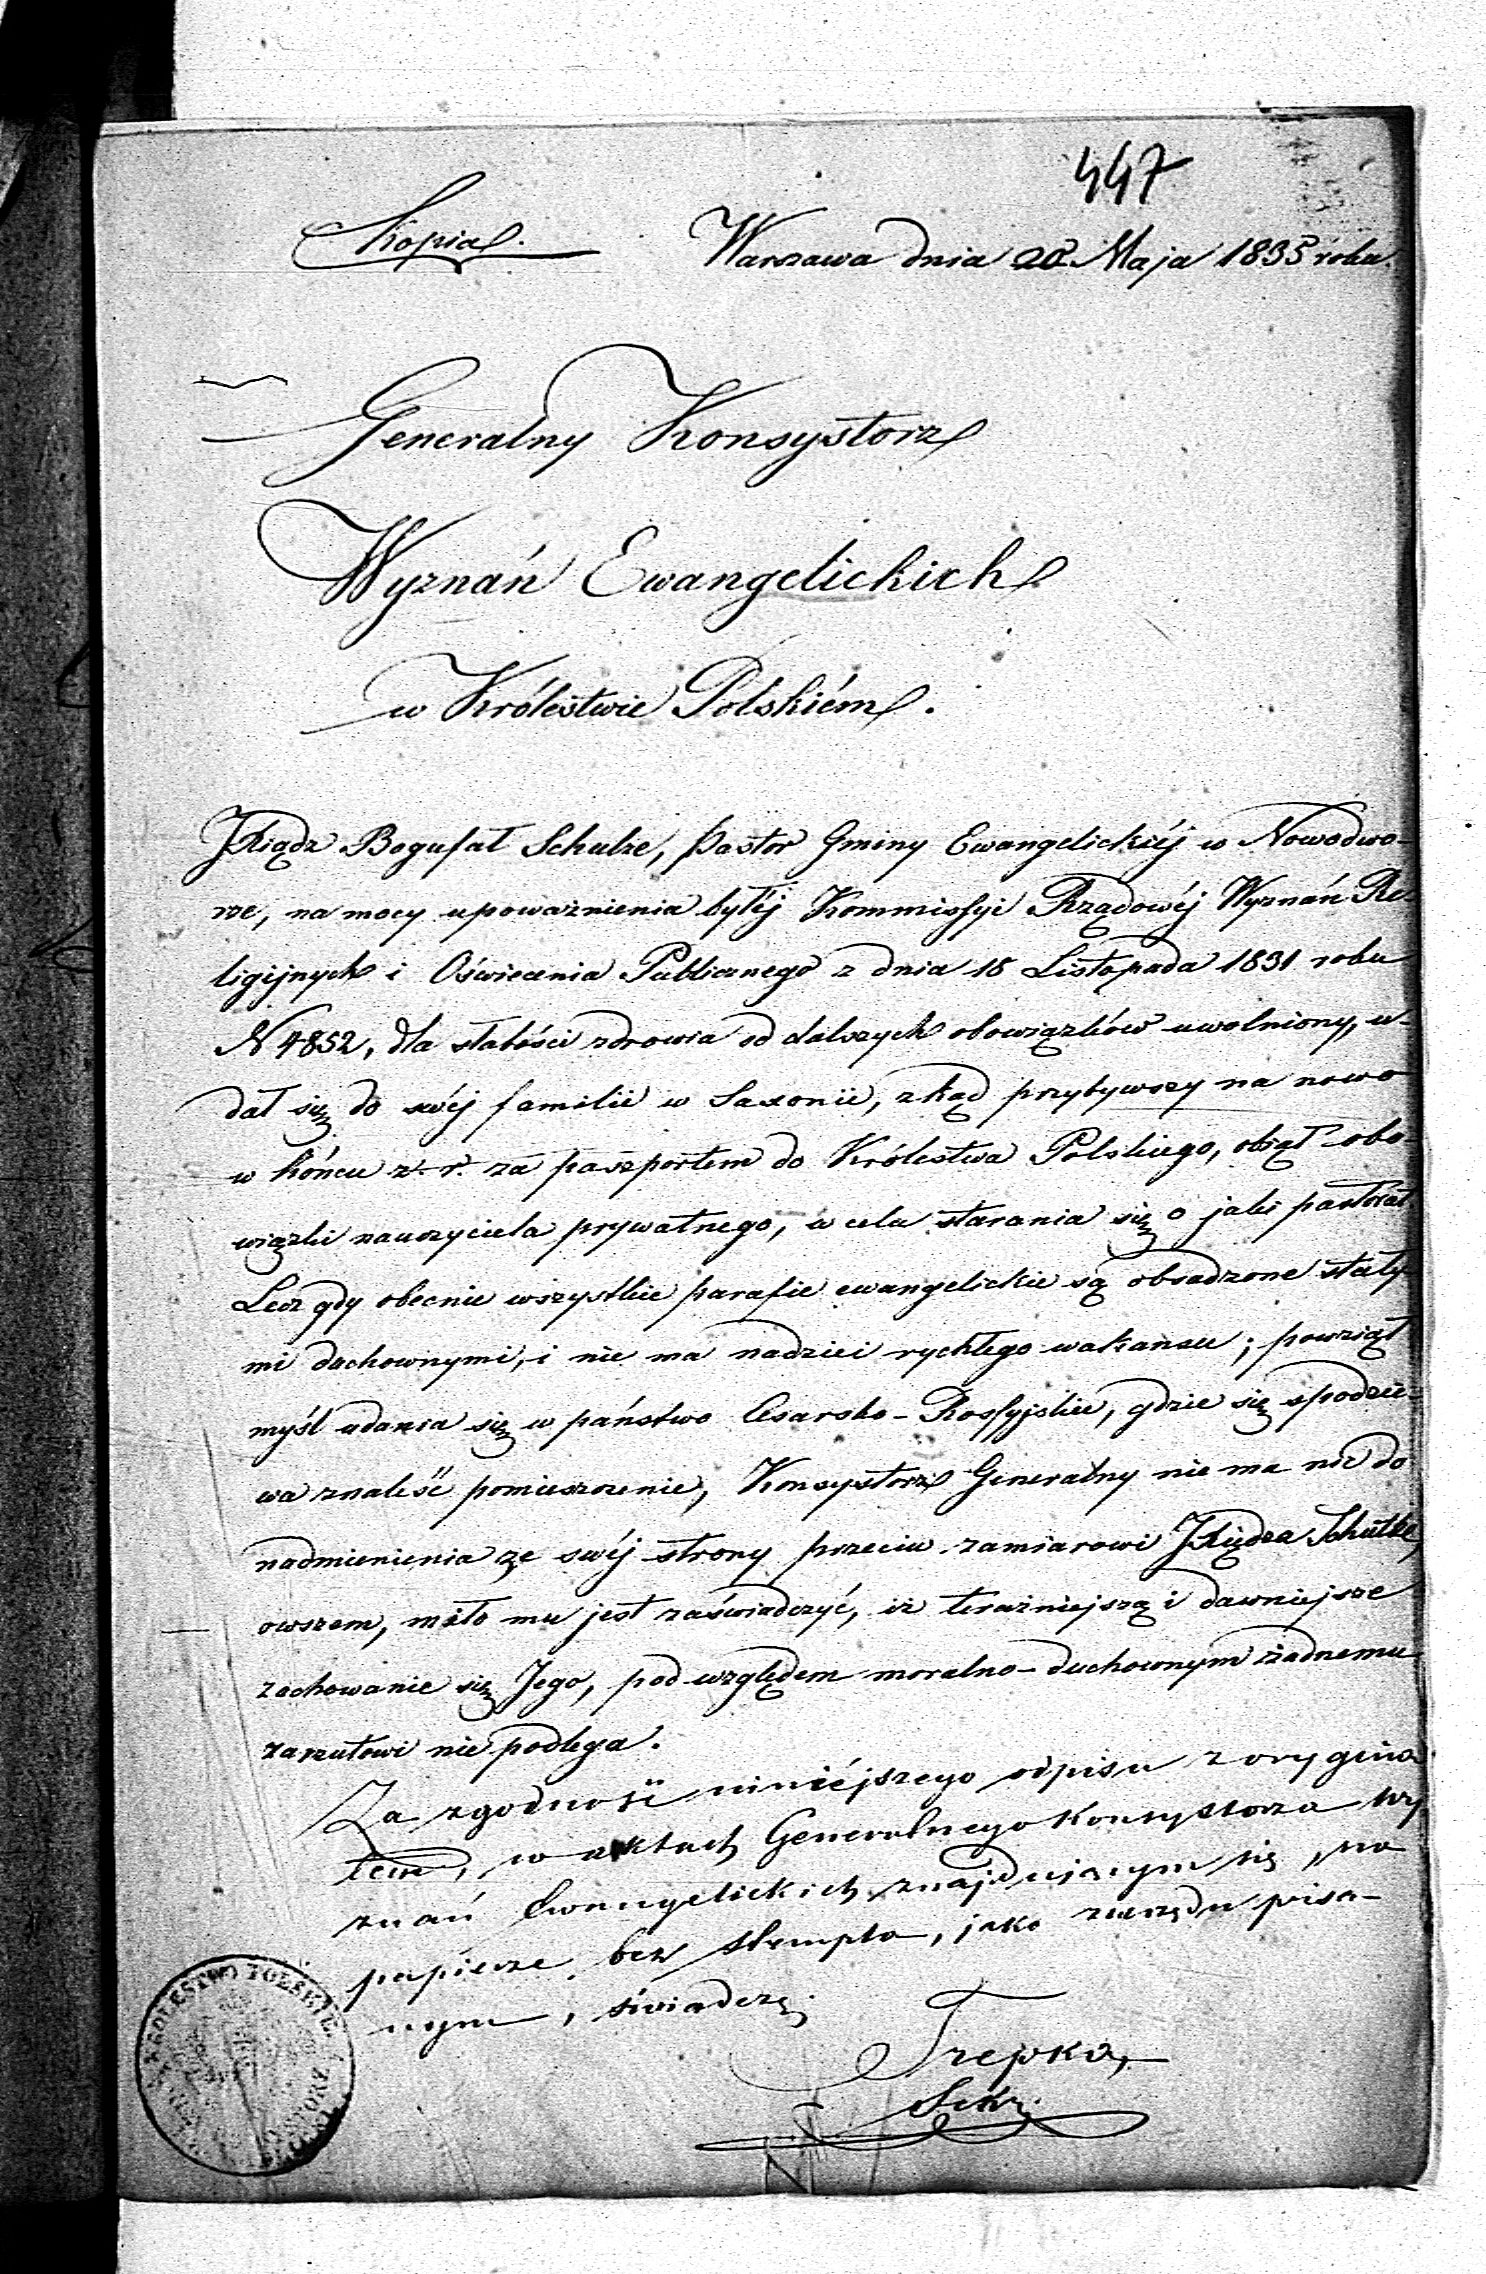 447
Kopia. Warszawa dnia 28 Maja 1835 roku.
Generalny Konsystorz
Wyznań Ewangelickich
w Królestwie Polskiém.
JXiądz Bogufał Schulze, Pastor Gminy Ewangelickiéj w Nowodwo-
rze, na mocy upoważnienia byłéj Kommissyi Rządowéj Wyznań Re-
ligijnych i Oświecenia Publicznego z dnia 18 Listopada 1831 roku
N 4852, dla słabości zdrowia od dalszych obowiązków uwolniony, u-
dał się do swéj familii w Saxonii, zkąd przybywszy na nowo
w końcu z. r. za paszportem do Królestwa Polskiego, objął obo-
wiązki nauczyciela prywatnego, w celu starania się o jaki pastorat
Lecz gdy obecnie wszystkie parafie ewangelickie są obsadzone stały-
mi duchownymi, i nie ma nadziei rychłego wakansu; powziął
myśl udania się w państwo Cesarsko-Rossyjskie, gdzie się spodzie-
wa znaleść pomieszczenie, Konsystorz Generalny nie ma nic do
nadmienienia ze swéj strony przeciw zamiarowi JXiędza Schulze,
owszem, miło mu jest zaświadczyć, iż teraźniejszą i dawniejsze
zachowanie się Jego, pod względem moralno-duchownym żadnemu
zarzutowi nie podlega.
Za zgodność niniéjszego odpisu z orygina-
łem, w aktach Generalnego Konsystorza Wy-
znań Ewangelickich znajdującym się, na
papierze bez stempla, jako z urzędu pisa-
nym, świadczę.
Trepka,
Sekr.
KRÓLESTWO POLSKIE